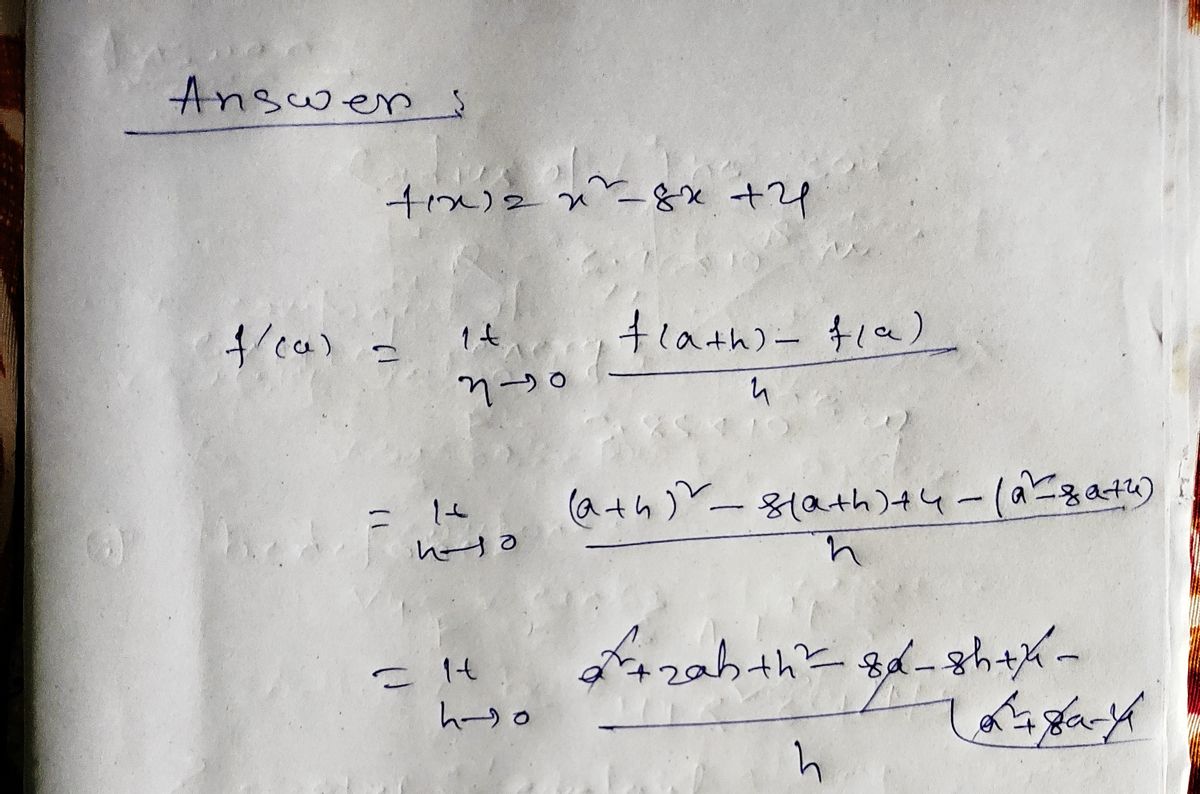 Answer :
f(x) = x² - 8x + 4
f'(a) = lt f(a+h) - f(a)
h→0 h
= lt (a+h)² - 8(a+h)+4 - (a²-8a+4)
h→0 h
= lt a²+2ah+h²-8a-8h+4-
h→0 a²+8a-4
h